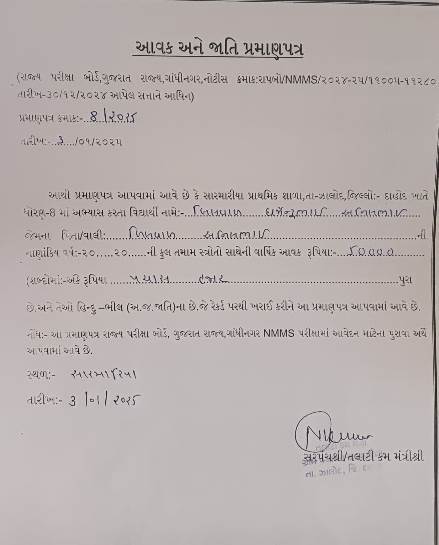 આવક અને જાતિ પ્રમાણપત્ર
(રાજ્ય પરીક્ષા બોર્ડ,ગુજરાત રાજ્ય,ગાંધીનગર,નોટીસ ક્રમાક:રાપબો/NMMS/૨૦૨૪-૨૫/૧૧૦૦૫-૧૧૨૮૦
તારીખ-૩૦/૧૨/૨૦૨૪ આપેલ સત્તાને આધિન)
પ્રમાણપત્ર ક્રમાક:- 8/૨૦૨૫
તારીખ:- 3 /૦૧/૨૦૨૫
આથી પ્રમાણપત્ર આપવામાં આવે છે કે સારમારીયા પ્રાથમિક શાળા,તા-ઝાલોદ,જિલ્લો:- દાહોદ ખાતે
ધોરણ-8 માં અભ્યાસ કરતા વિદ્યાર્થી નામે:-
જેમના પિતા/વાલી: ની
નાણાંકિય વર્ષ:-૨૦.....૨૦.....ની કુલ તમામ સ્ત્રોતો સાથેની વાર્ષિક આવક રૂપિયા:- ૫૦૦૦૦
(શબ્દોમાં:-અંકે રૂપિયા પચાસ હજાર પુરા
છે.અને તેઓ હિન્દુ –ભીલ (અ.જ.જાતિ)ના છે.જે રેકર્ડ પરથી ખરાઈ કરીને આ પ્રમાણપત્ર આપવામાં આવે છે.
નોંધ:- આ પ્રમાણપત્ર રાજ્ય પરીક્ષા બોર્ડ, ગુજરાત રાજ્ય,ગાંધીનગર NMMS પરીક્ષામાં આવેદન માટેના પુરાવા અર્થે
આપવામાં આવે છે.
સ્થળ:- સારમારિયા
તારીખ:- 3 /૦૧/ ૨૦૨૫
સરપંચશ્રી/તલાટી કમ મંત્રીશ્રી
તા. ઝાલોદ, જિ. દ